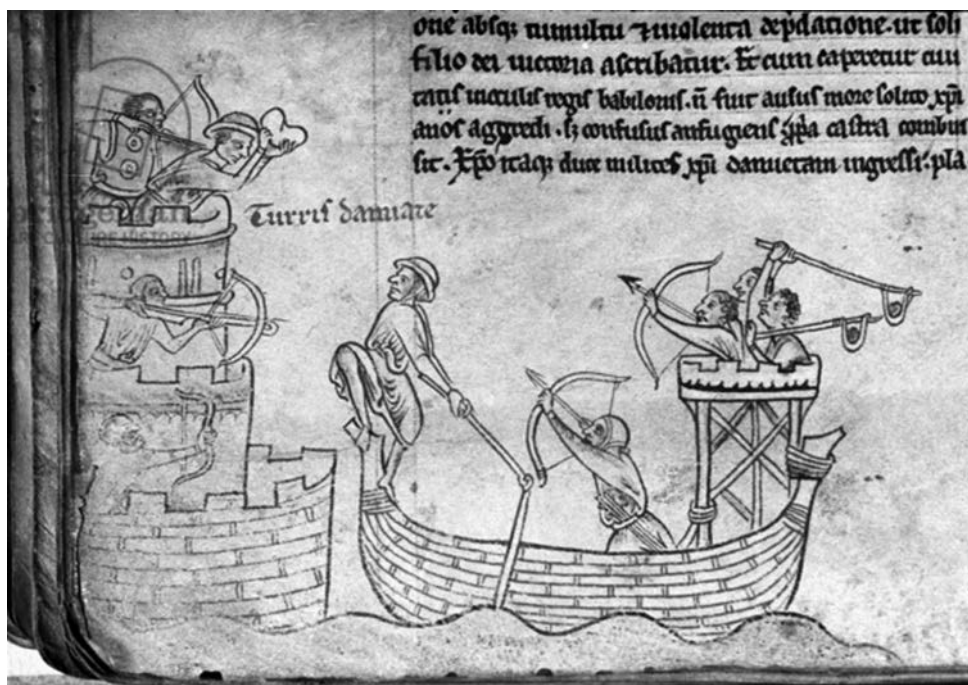 one absq; tumultu ⁊ uiolenta dep̄datione. ut soli
filio dei uictoria ascribatur. Et cum caperetur ciui
tatis in oculis regis babilonis. n̄ fuit ausus more solito xp̄i
anos aggredi. sʒ confusus aufugiens castra combus
sit. Xp̄o itaq; duce milites xp̄i damietam ingressi. pla
Turris damiate